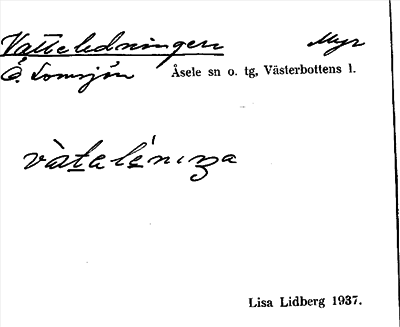 Vatteledningen Myr
Ö. Tomsjön Åsele sn o. tg, Västerbottens l.
vàtalénıŋa
Lisa Lidberg 1937.